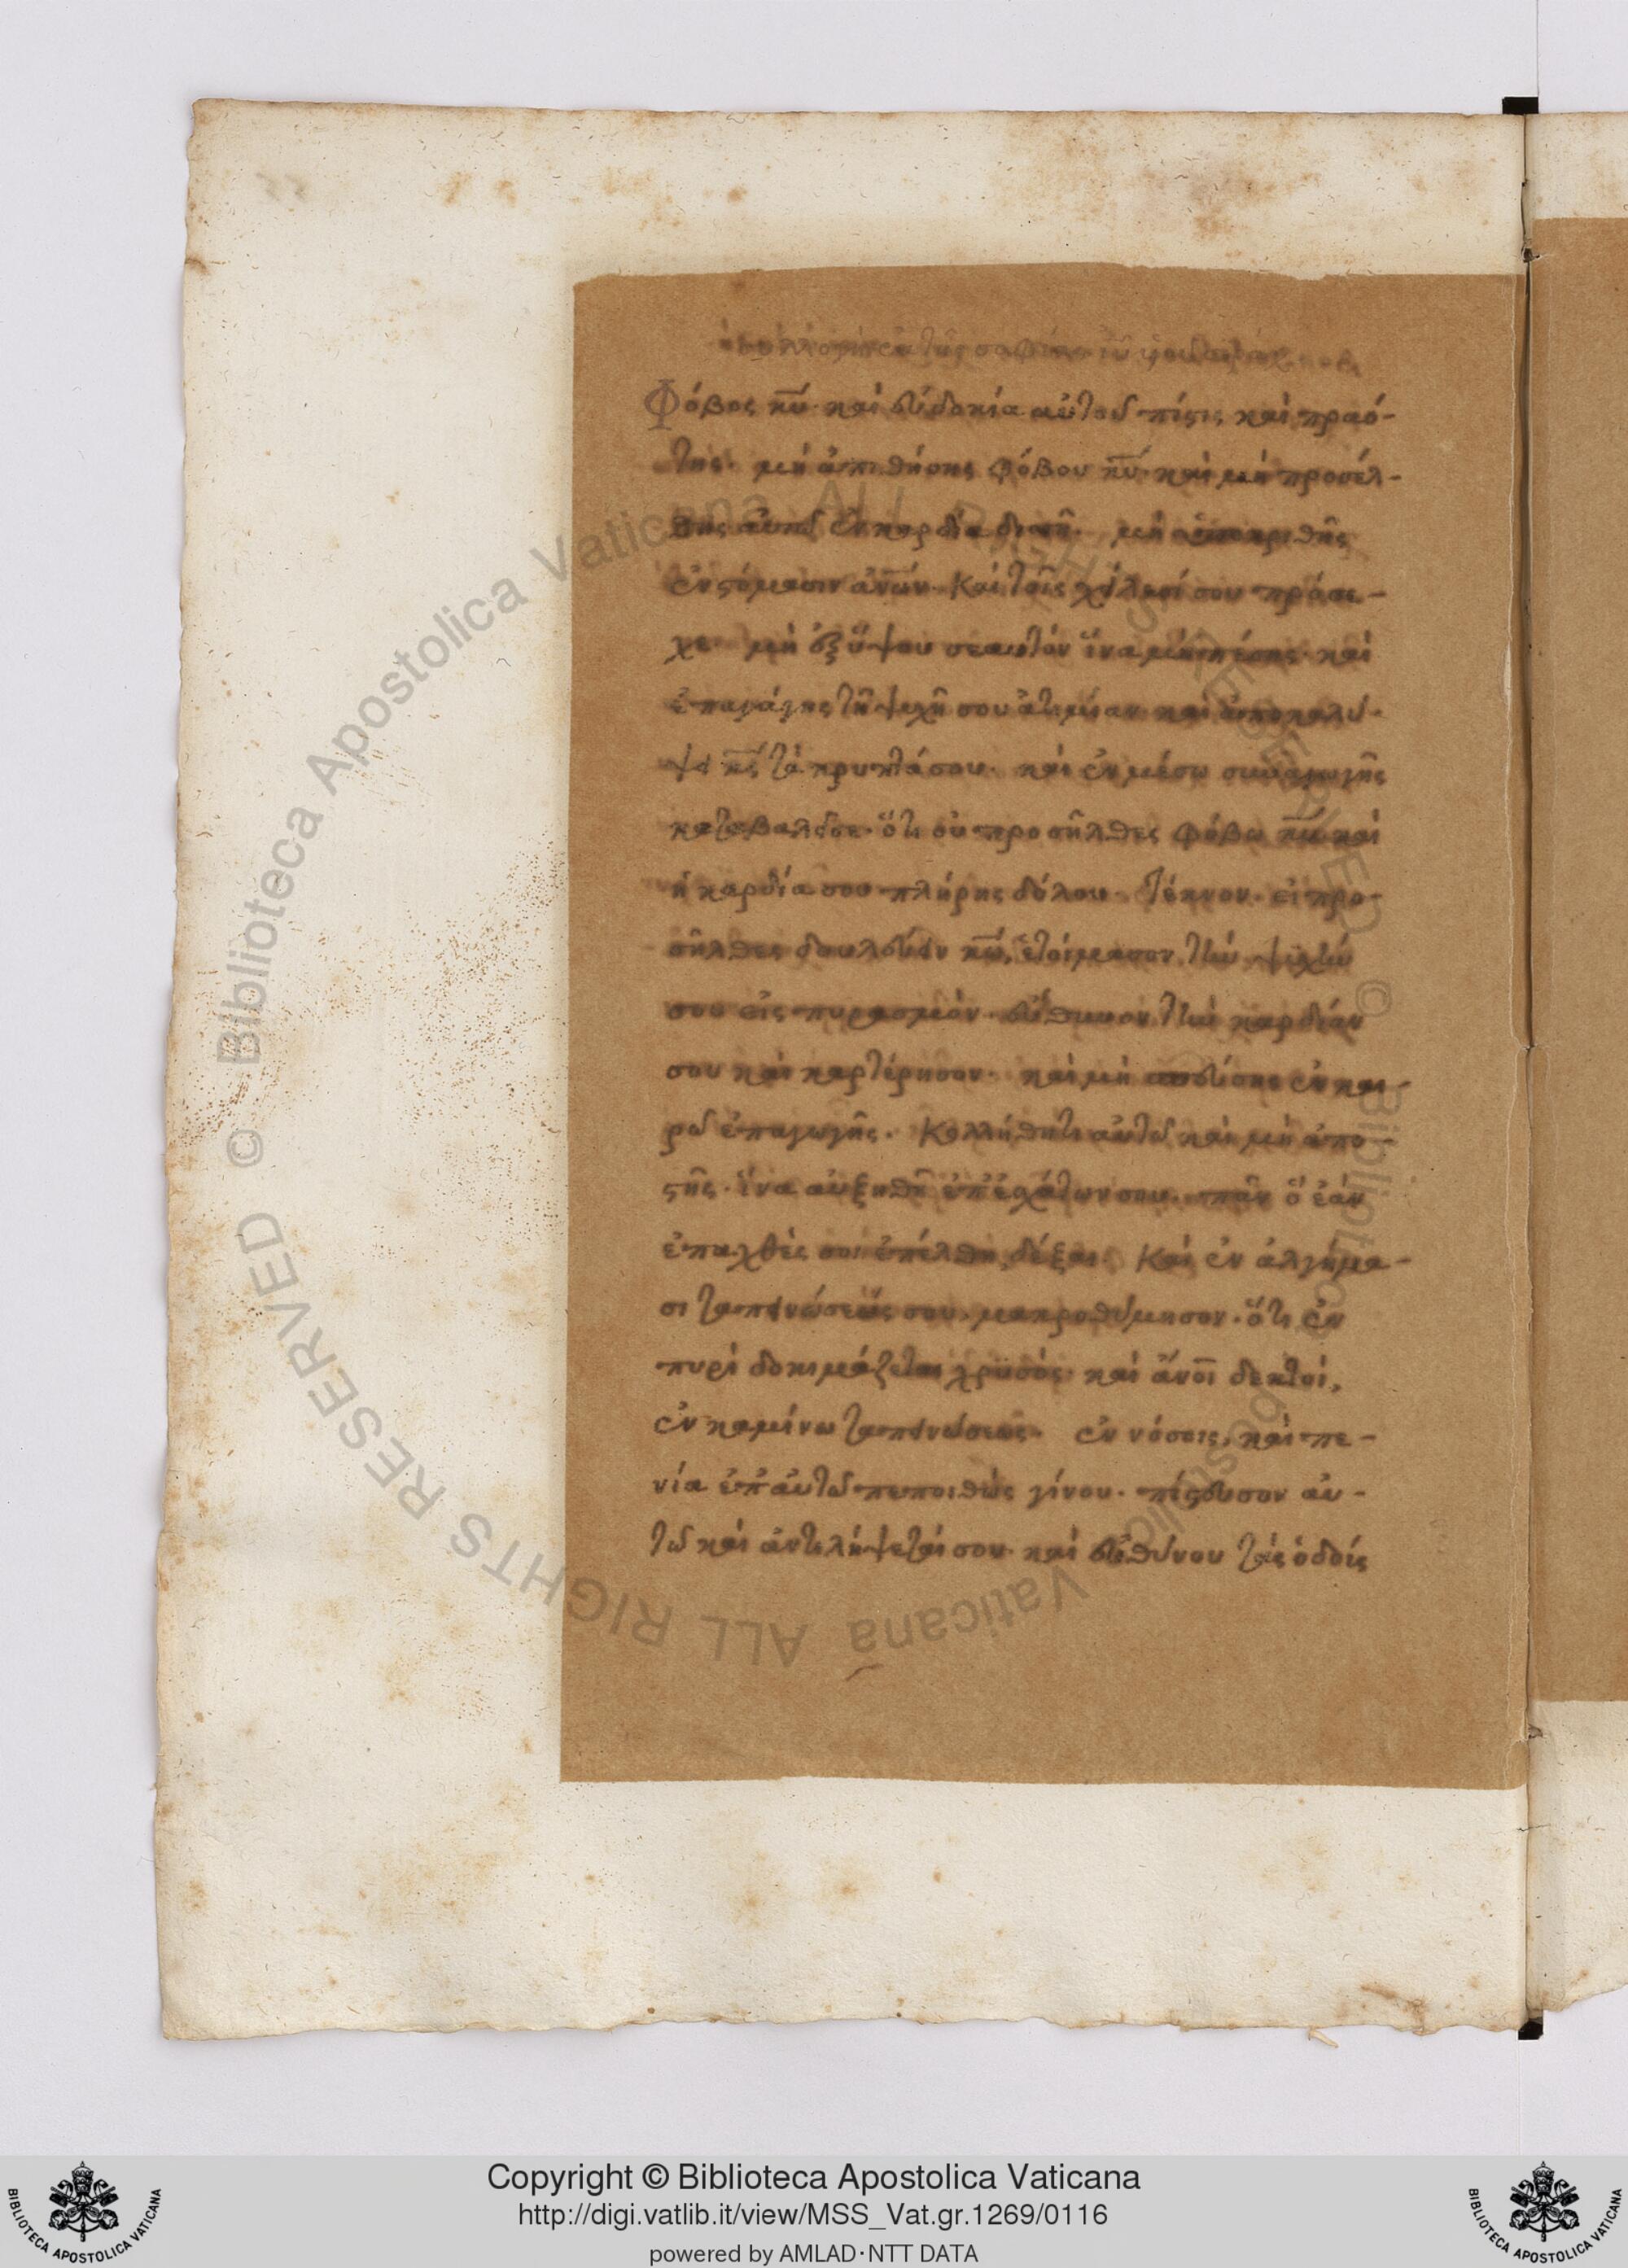 Φόβος κ͞υ· καὶ εὐδοκία αὐτοῦ πίστις καὶ πραό-
της· μὴ ἀπιθήσης φόβου κ͞υ· καὶ μὴ προσέλ-
θης αὐτῶ ἐν καρδία δισσῆ· μὴ ὑποκριθῆς
ἐν στόμασιν ἀν͞ων· Καὶ τοῖς χείλεσί σου πρόσε-
χε· μὴ ἐξύψου σεαυτὸν ἵνα μὴ πέσης· καὶ
ἐπαγάγης τῆ ψυχῆ σου ἀτιμίαν καὶ ἀποκαλύ-
ψει κ͞ς τὰ κρυπτά σου· καὶ ἐν μέσω συναγωγῆς
καταβαλεῖ σε· ὅτι οὐ προσῆλθες φόβω κ͞υ καὶ
ἡ καρδία σου πλήρης δόλου· Τέκνον· εἰ προ-
σῆλθες δουλεύειν κ͞ω, ἑτοίμασον τὴν ψυχήν
σου εἰς πειρασμόν· εὔθυνον τὴν καρδίαν
σου καὶ καρτέρησον· καὶ μὴ σπεύσης ἐν και-
ρῶ ἐπαγωγῆς· Κολλήθητι αὐτῶ καὶ μὴ ἀπο-
στῆς· ἵνα αὐξηθῆ ἐπ ἐσχάτων σου· πᾶν ὃ ἐὰν
ἐπαχθὲς σοι ἐπέλθη δέξαι· Καὶ ἐν ἀλγήμα-
σι ταπεινώσεώς σου, μακροθύμησον· ὅτι ἐν
πυρὶ δοκιμάζεται χρυσὸς· καὶ ἄν͞οι δεκτοί,
ἐν καμίνω ταπεινώσεως· ἐν νόσοις, καὶ πε-
νία ἐπ αὐτῶ πεποιθὼς γίνου· πίστευσον αὐ-
τῶ καὶ ἀντιλήψεταί σου· καὶ εὐθύνου τὰς ὁδούς
Copyright © Biblioteca Apostolica Vaticana
http://digi.vatlib.it/view/MSS_Vat.gr.1269/0116
powered by AMLAD·NTT DATA
BIBLIOTECA APOSTOLICA VATICANA
BIBLIOTECA APOSTOLICA VATICANA
© Biblioteca Apostolica Vaticana ALL RIGHTS RESERVED © Biblioteca Apostolica Vaticana ALL RIGHTS RESERVED